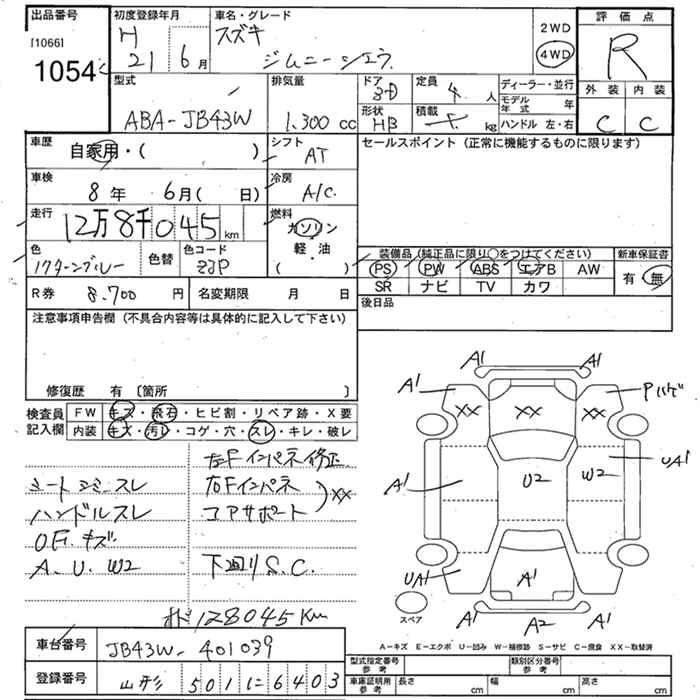 出品番号 初度登録年月 車名・グレード
[1066] 1054
H 21 6月 スズキ ジムニーシエラ
2WD 4WD
評価点 R
外装 内装
C C
型式 ABA-JB43W
排気量 1.300 cc
ドア 3D 定員 4人
形状 HB 積載 kg
ディーラー・並行
モデル年式 年
ハンドル 左・右
車歴 自家用・( )
シフト AT
セールスポイント (正常に機能するものに限ります)
車検 8年 6月( 日)
冷房 A/C
走行 12万8千045km
燃料 ガソリン 軽・油 ( )
色 色替 色コード ZJP
装備品 (純正品に限り○をつけてください) 新車保証書
PS PW ABS エアB AW 有 無
SR ナビ TV カワ
R券 8.700円 名変期限 月 日
後日品
注意事項申告欄 (不具合内容等は具体的に記入して下さい)
修復歴 有 〔箇所 〕
検査員記入欄
FW キズ・飛石・ヒビ割・リペア跡・X要
内装 キズ・汚レ・コゲ・穴・スレ・キレ・破レ
左Fインパネ修正
シートシミ、スレ 右Fインパネ
ハンドルスレ コアサポート XX
OF. キズ
A、U、W2 下廻りS.C.
128045Km
A1 A1
A1 XX XX XX Pハゲ
A1 U2 W2 UA1
UA1 A1
A1 A2 A1
スペア
A-キズ E-エクボ U-凹み W-補修跡 S-サビ C-腐食 XX-取替済
車台番号 JB43W-401039
登録番号 山形 501 に 6403
型式指定番号 参考 類別区分番号 参考
車庫証明用 参考 長さ cm 幅 cm 高さ cm